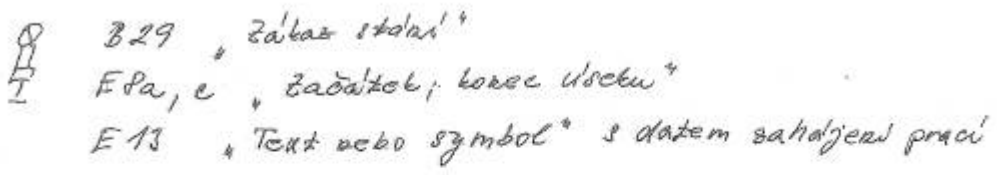 B29 „Zákaz stání“
E8a, c „Začátek, konec úseku“
E13 „Text nebo symbol“ s datem zahájení prací